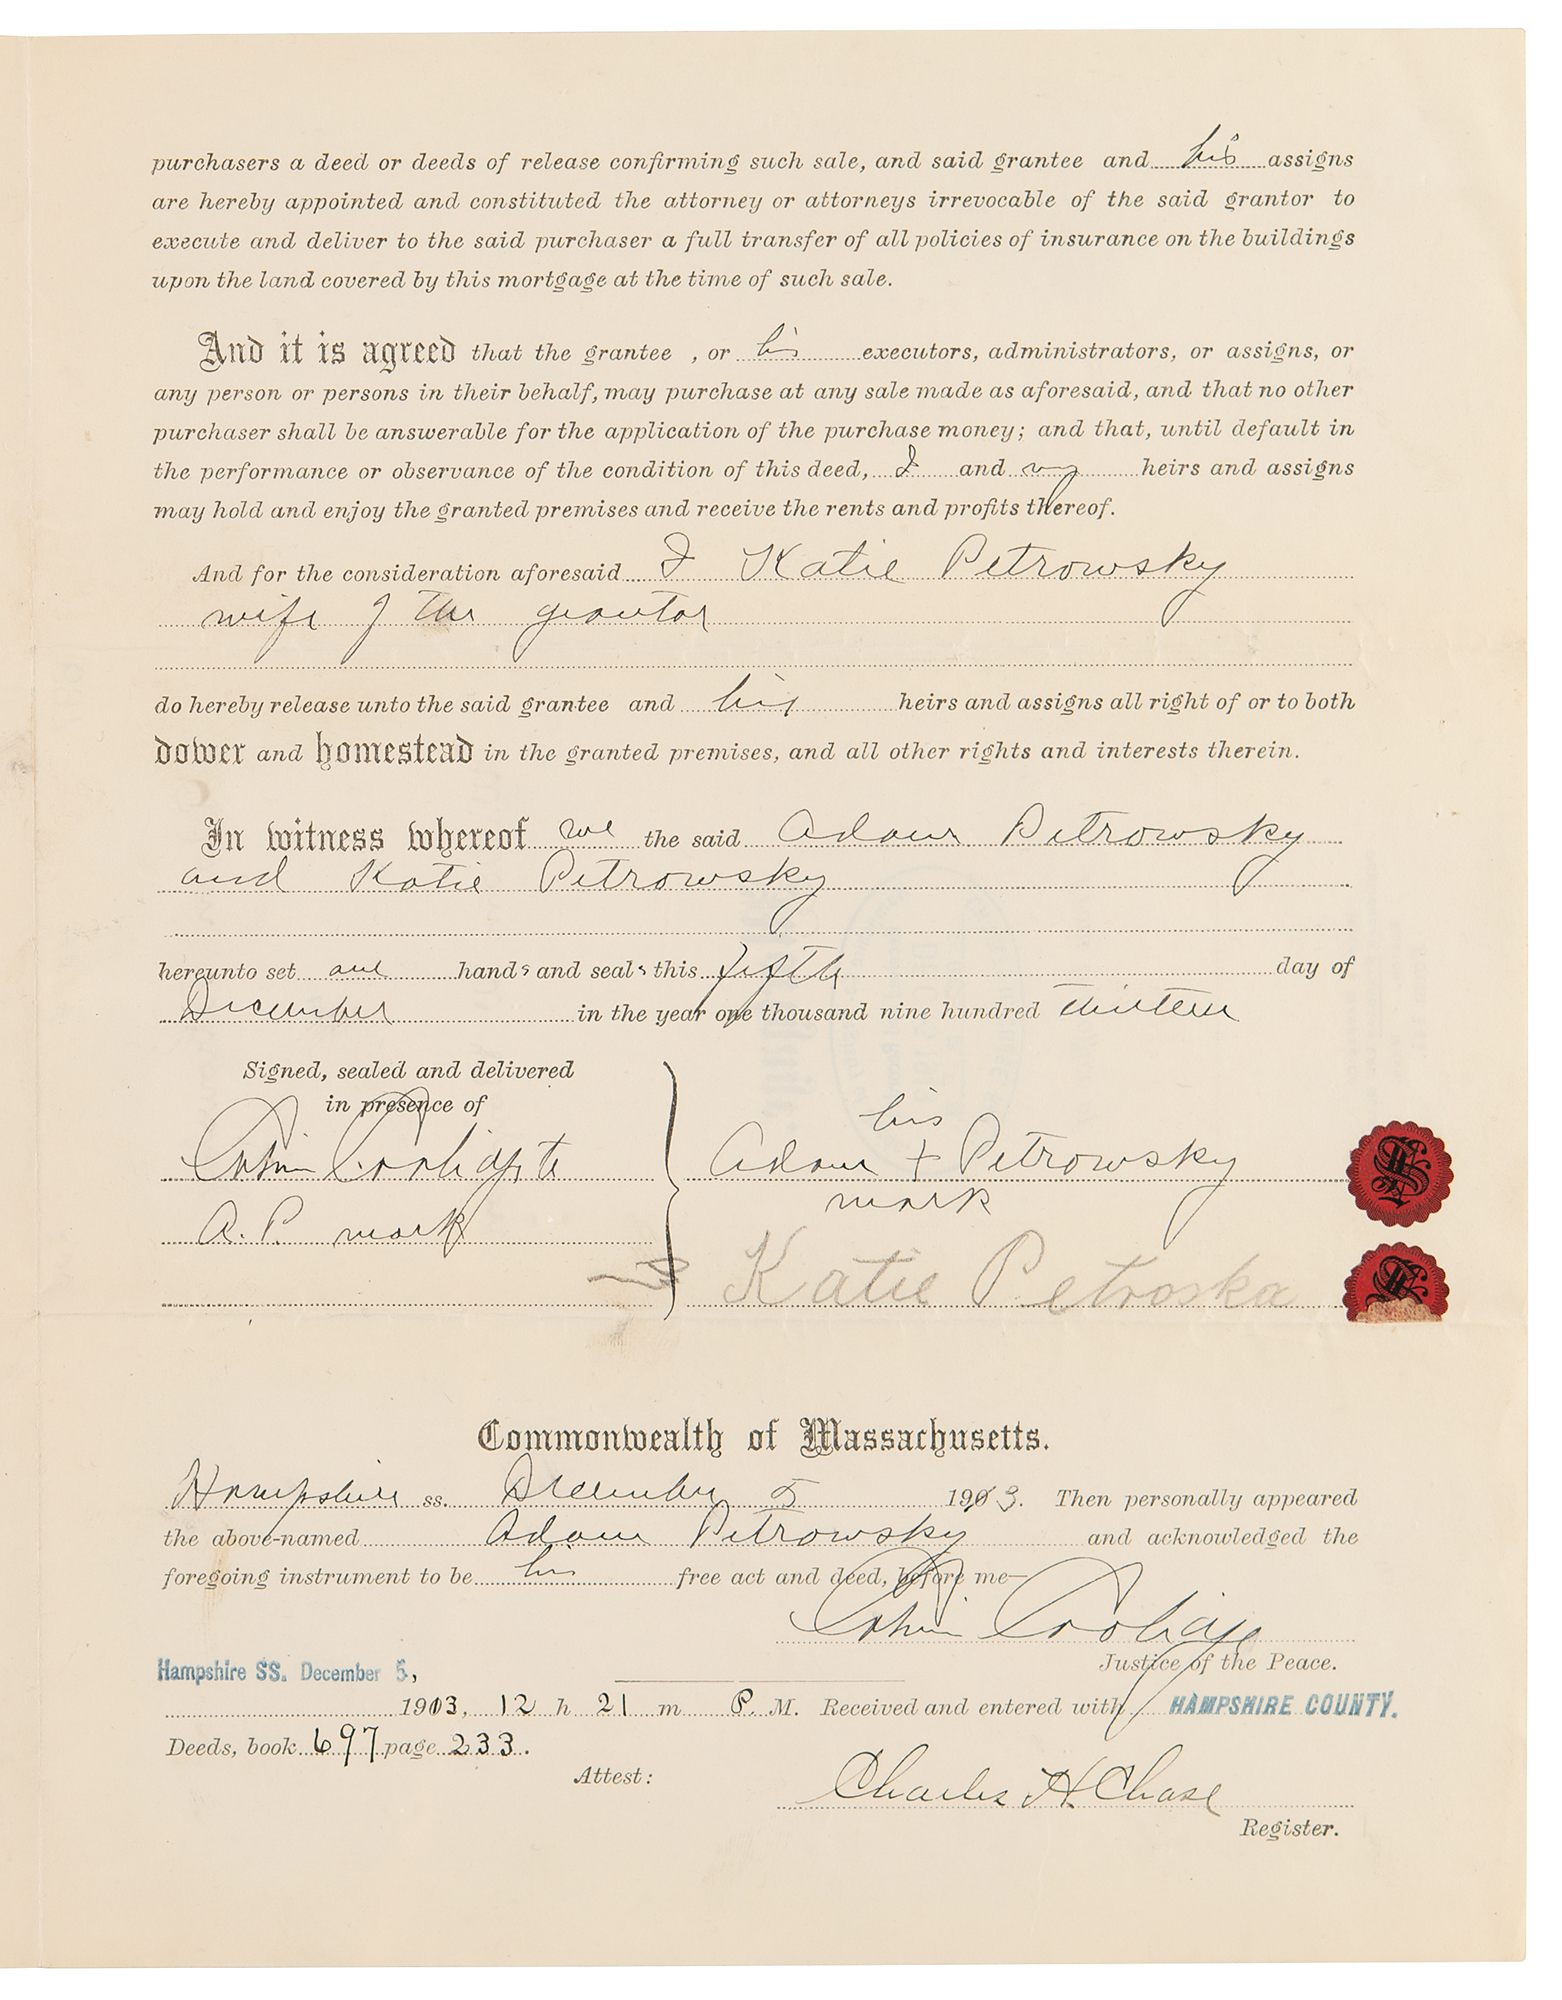 purchasers a deed or deeds of release confirming such sale, and said grantee and his assigns
are hereby appointed and constituted the attorney or attorneys irrevocable of the said grantor to
execute and deliver to the said purchaser a full transfer of all policies of insurance on the buildings
upon the land covered by this mortgage at the time of such sale.
And it is agreed that the grantee , or his executors, administrators, or assigns, or
any person or persons in their behalf, may purchase at any sale made as aforesaid, and that no other
purchaser shall be answerable for the application of the purchase money; and that, until default in
the performance or observance of the condition of this deed, I and my heirs and assigns
may hold and enjoy the granted premises and receive the rents and profits thereof.
And for the consideration aforesaid I Katie Petrowsky
wife of the grantor
do hereby release unto the said grantee and his heirs and assigns all right of or to both
dower and homestead in the granted premises, and all other rights and interests therein.
In witness whereof we the said Adam Petrowsky
and Katie Petrowsky
hereunto set our hands and seals this fifth day of
December in the year one thousand nine hundred thirteen
Signed, sealed and delivered
in presence of
his
Calvin Coolidge to Adam + Petrowsky
A. P. mark mark
Katie Petroska
Commonwealth of Massachusetts.
Hampshire ss. December 5 1913. Then personally appeared
the above-named Adam Petrowsky and acknowledged the
foregoing instrument to be his free act and deed, before me—
Calvin Coolidge
Justice of the Peace.
Hampshire SS. December 5,
1913, 12 h 21 m P. M. Received and entered with HAMPSHIRE COUNTY.
Deeds, book 697 page 233.
Attest:
Charles H. Chase
Register.